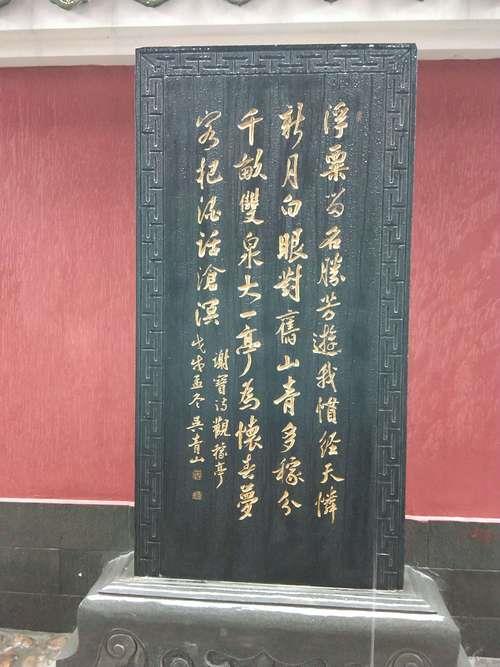 浮粟名勝芳遊我慣經天憐
新月白眼對舊山青多稼分
千畝雙泉大一亭為懷春夢
客把酒話滄溟
謝寶詩觀稼亭
戊戌孟冬吳青山